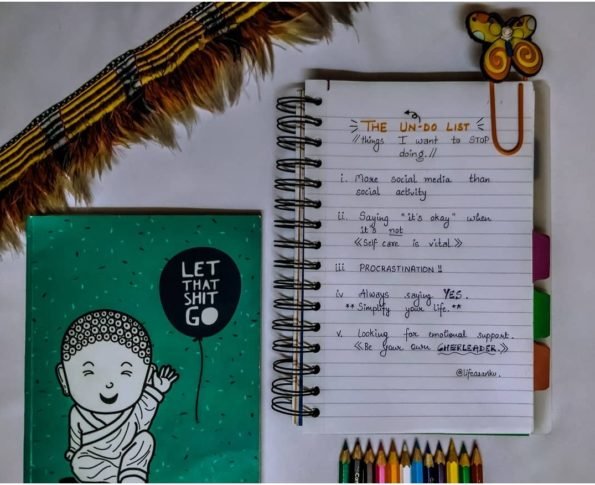 THE UN-DO LIST
//things I want to STOP
doing.//
i. More social media than
social activity
ii. Saying "it's okay" when
it's not
《Self care is vital.》
iii PROCRASTINATION!!
iv Always saying YES.
**Simplify your life.**
v. Looking for emotional support.
《Be your own CHEERLEADER.》
LET
THAT
SHIT
GO